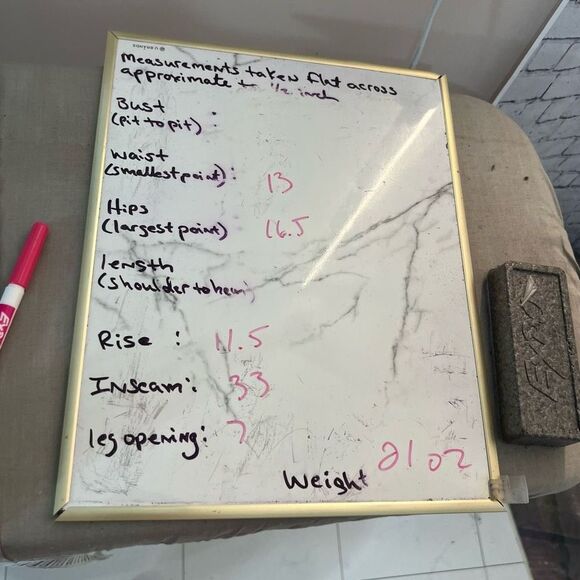 U BRANDS
Measurements taken flat across
approximate to 1/2 inch
Bust :
(pit to pit)
Waist
(smallest point): 13
Hips
(largest point) 16.5
length
(shoulder to hem)
Rise : 11.5
Inseam: 33
leg opening: 7
Weight 21 oz
EXPO
EXPO